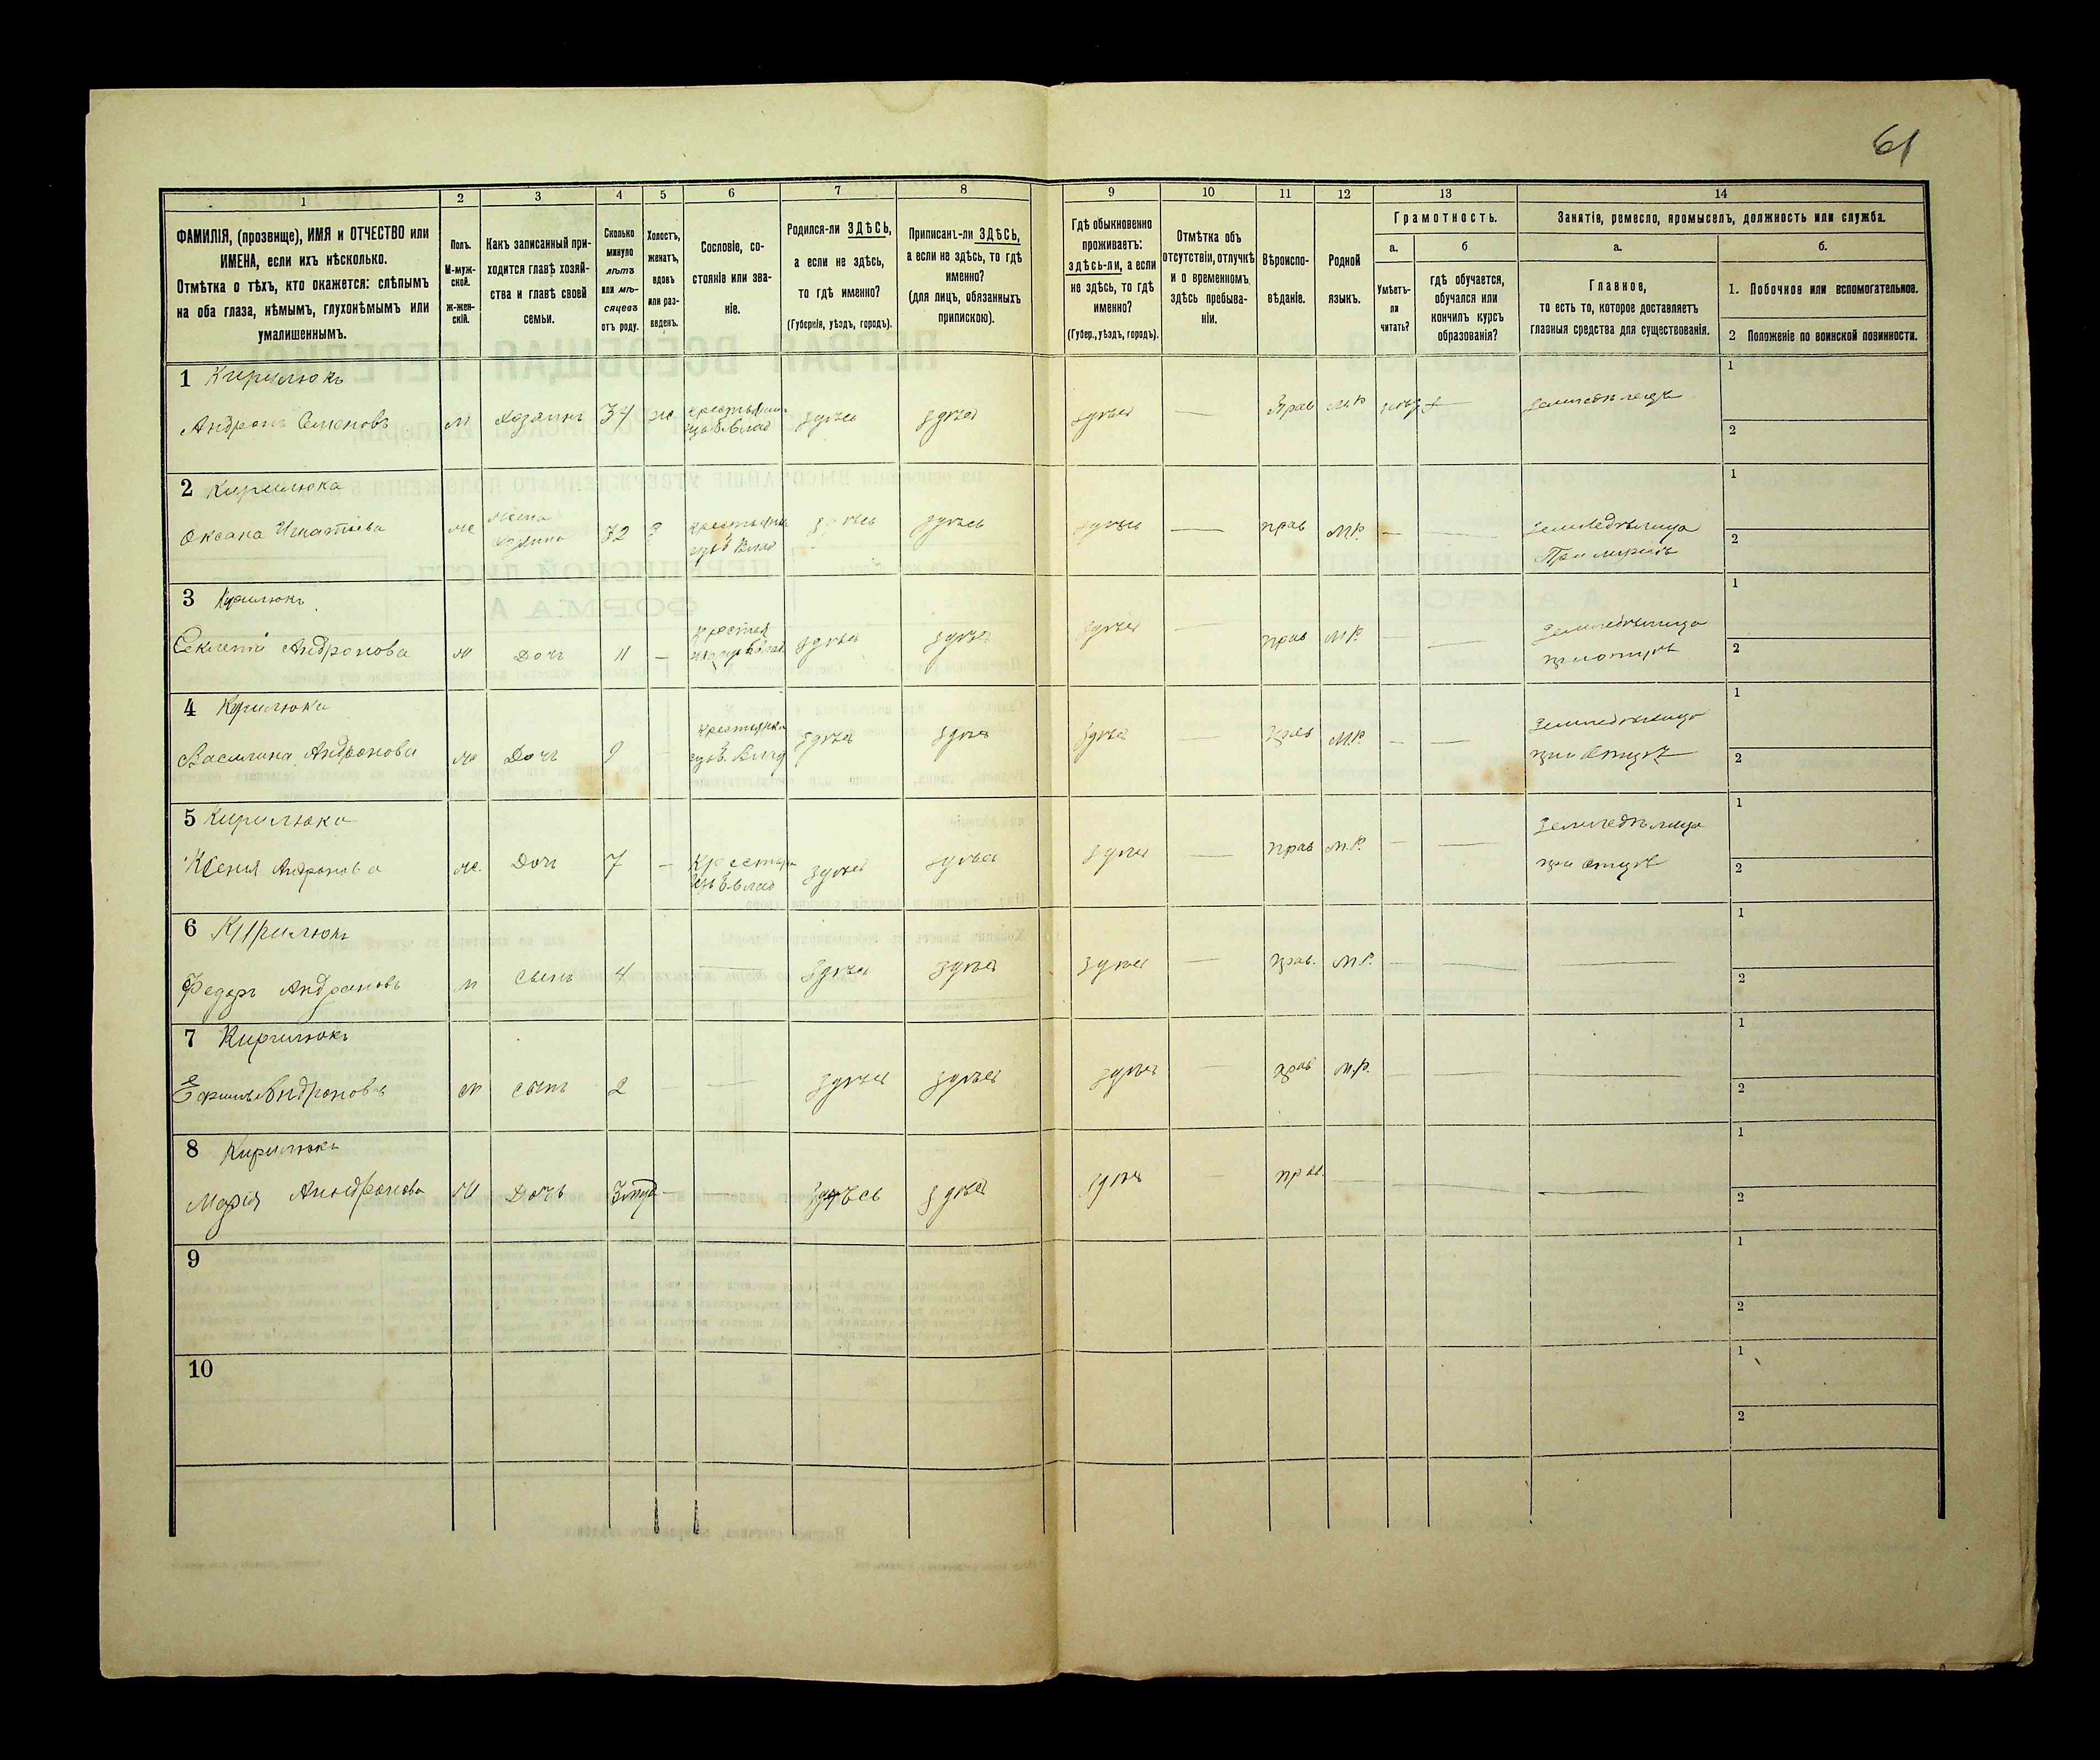 61
1 2 3 4 5 6 7 8 9 10 11 12 13 14
ФАМИЛІЯ, (прозвище), ИМЯ и ОТЧЕСТВО или
ИМЕНА, если ихъ нѣсколько.
Отмѣтка о тѣхъ, кто окажется: слѣпымъ
на оба глаза, нѣмымъ, глухонѣмымъ или
умалишеннымъ.
Полъ.
М-муж-
ской.
ж-жен-
скій.
Какъ записанный при-
ходится главѣ хозяй-
ства и главѣ своей
семьи.
Сколько
минуло
лѣтъ
или мѣ-
сяцевъ
отъ роду.
Холостъ,
женатъ,
вдовъ
или раз-
веденъ.
Сословіе, со-
стояніе или зва-
ніе.
Родился-ли ЗДѢСЬ,
а если не здѣсь,
то гдѣ именно?
(Губернія, уѣздъ, городъ).
Приписанъ-ли ЗДѢСЬ,
а если не здѣсь, то гдѣ
именно?
(для лицъ, обязанныхъ
припискою).
Гдѣ обыкновенно
проживаетъ:
здѣсь-ли, а если
не здѣсь, то гдѣ
именно?
(Губер., уѣздъ, городъ).
Отмѣтка объ
отсутствіи, отлучкѣ
и о временномъ
здѣсь пребыва-
ніи.
Вѣроиспо-
вѣданіе.
Родной
языкъ.
Грамотность.
а. б
Умѣетъ-
ли
читать?
гдѣ обучается,
обучался или
кончилъ курсъ
образованія?
Занятіе, ремесло, промыселъ, должность или служба.
а. б.
Главное,
то есть то, которое доставляетъ
главныя средства для существованія.
1. Побочное или вспомогательное.
2 Положеніе по воинской повинности.
1 Кирилюкъ 1
Андронъ Семеновъ М хозяинъ 34 ж здѣсь здѣсь здѣсь — Прав М.Р — земледѣлецъ
2
2 Кирилюка 1
Оксана Игнатіева ж жена 32 здѣсь здѣсь здѣсь — прав М.Р. — — земледѣлица
2
3 Кирилюкъ 1
Андронова дочь 11 — здѣсь здѣсь здѣсь — прав М.Р. — — земледѣлица
2
4 Кирилюка 1
Василина Андронова ж дочь 9 — крестьянка здѣсь здѣсь здѣсь — прав М.Р. — — земледѣлица
при отцѣ 2
5 Кирилюка 1
Ксенія Андронова ж. дочь 7 — здѣсь здѣсь здѣсь — прав М.Р. — — земледѣлица
при отцѣ 2
6 Кирилюкъ 1
Федоръ Андроновъ м сынъ 4 — — здѣсь здѣсь здѣсь — прав. М.Р. — — —
2
7 Кирилюкъ 1
Андроновъ м сынъ 2 — — здѣсь здѣсь здѣсь — прав М.Р. — — —
2
8 Кирилюкъ 1
Марія Андронова дочь — — здѣсь здѣсь здѣсь — прав. — — — —
2
9 1
2
10 1
2